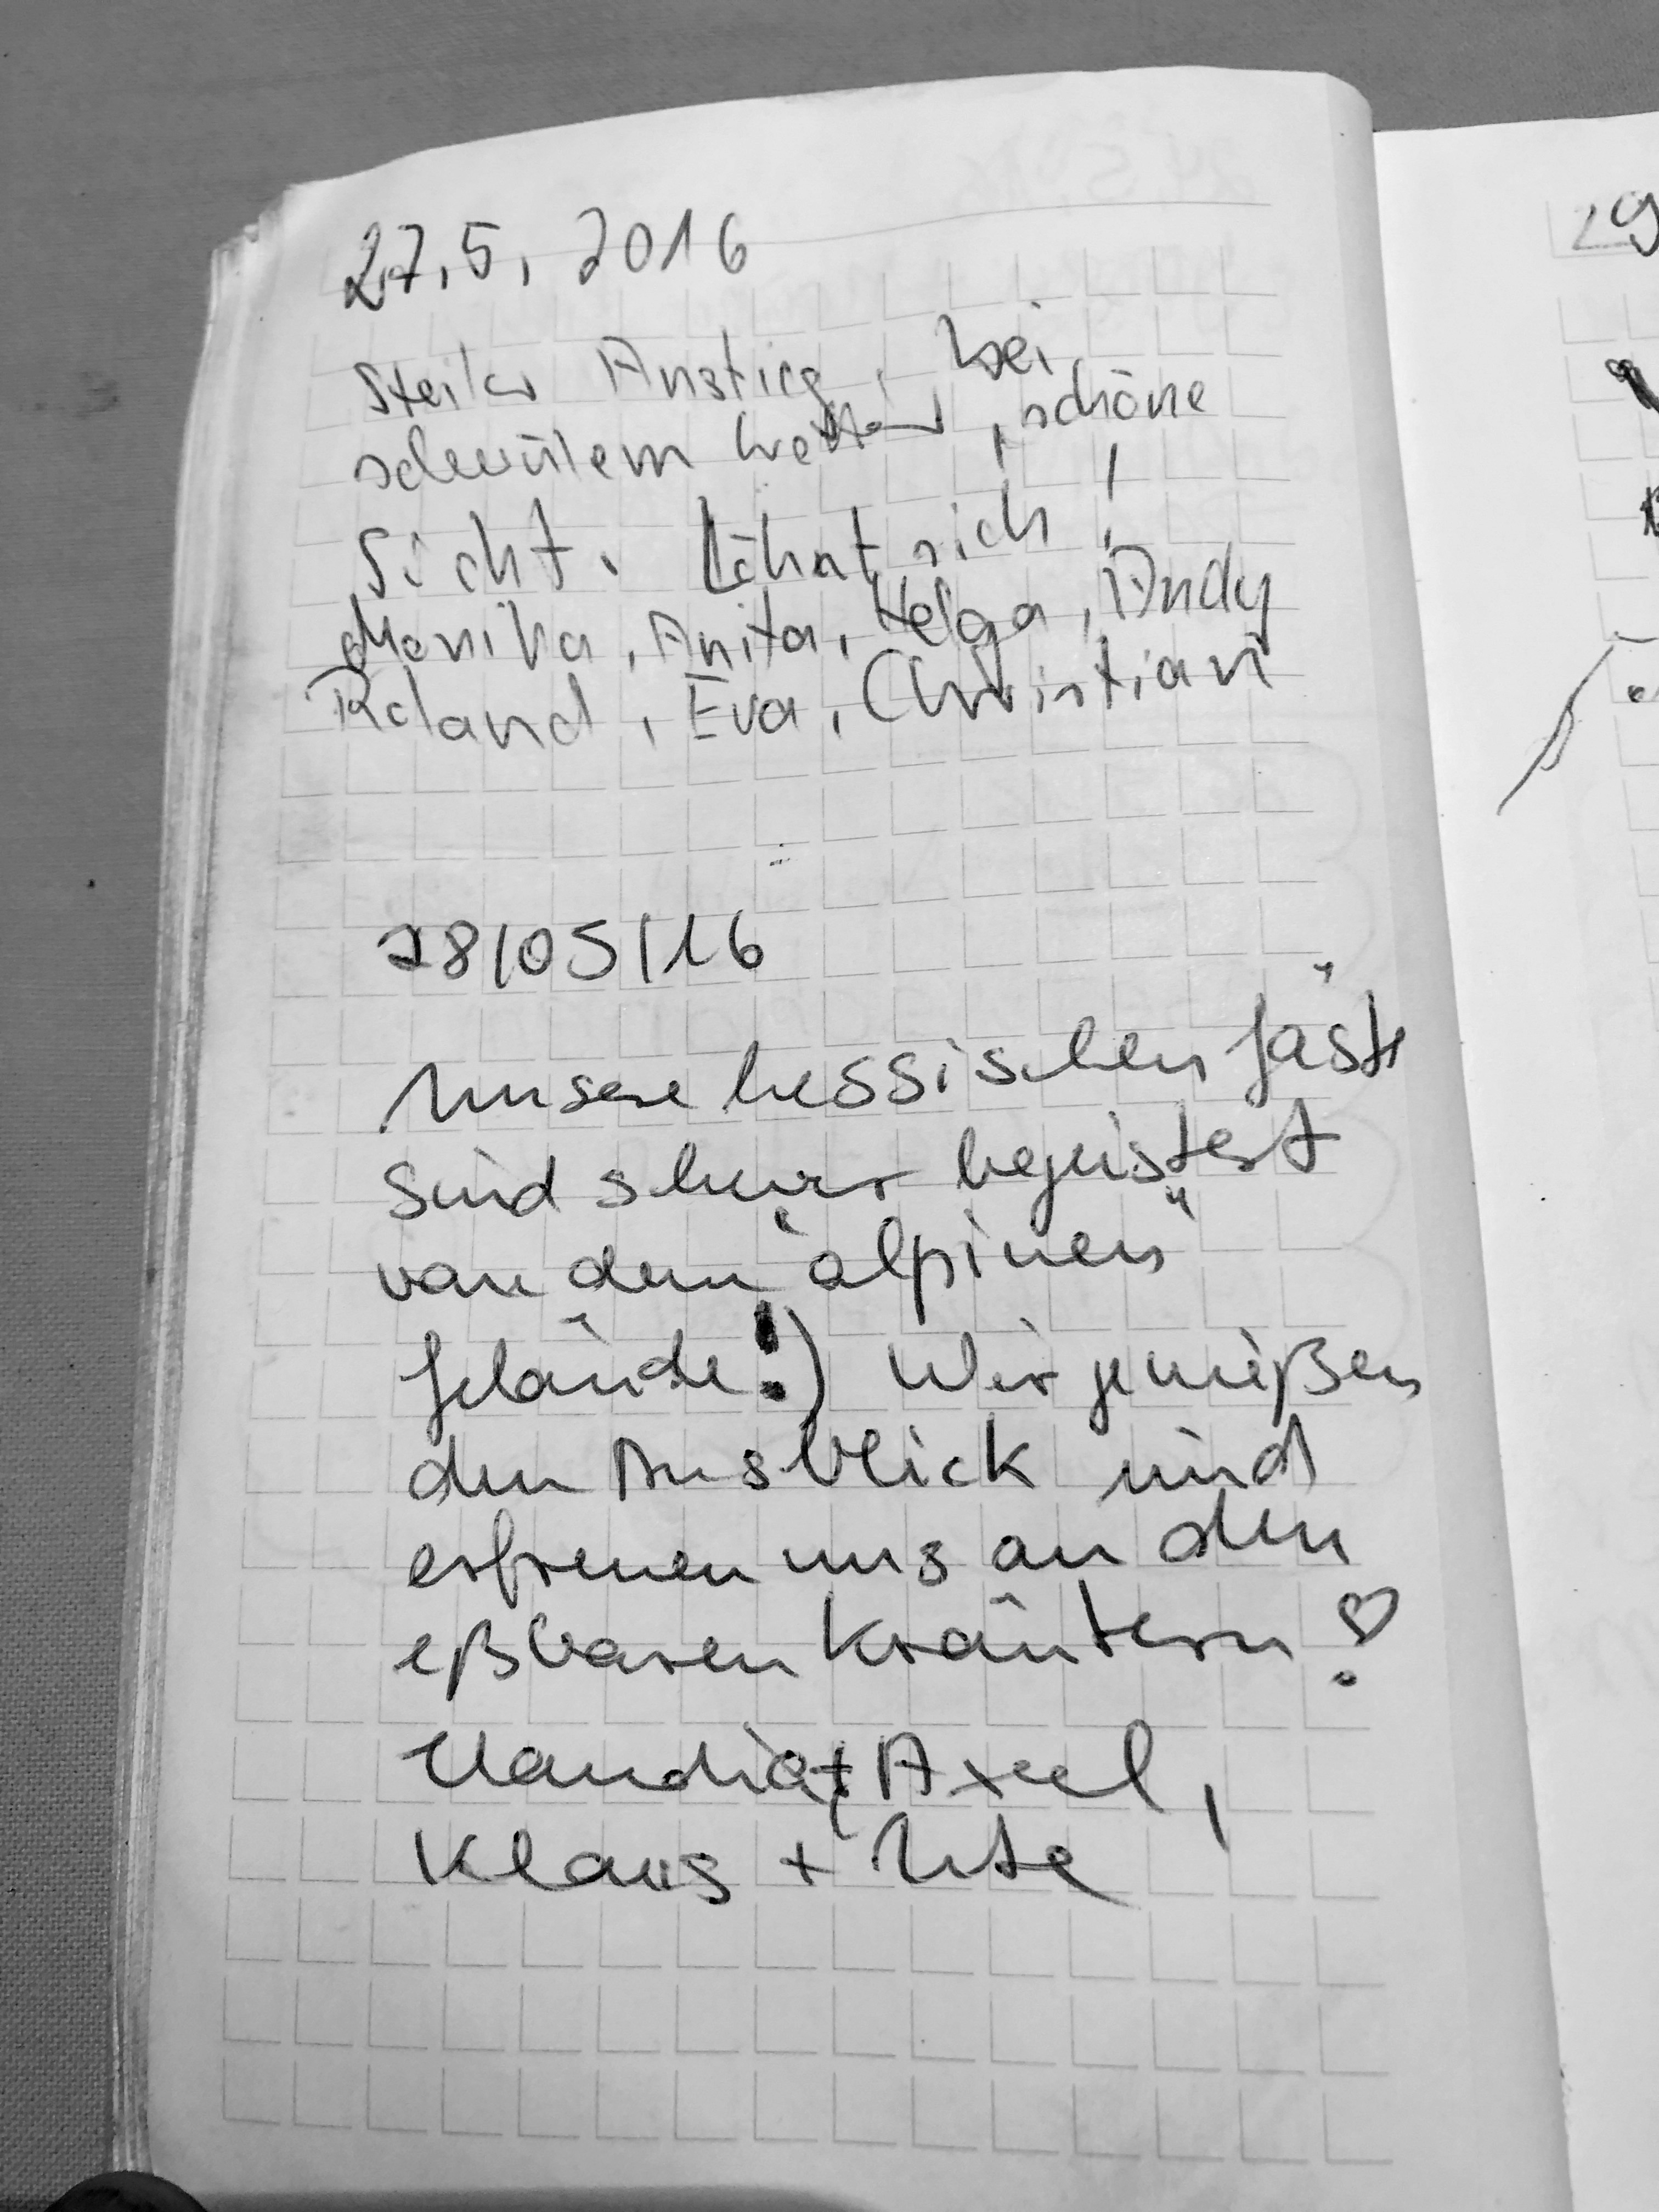 27.5. 2016
Steiler Anstieg, bei
schwülem Wetter, schöne
Sicht. Lohnt sich!
Monika, Anita, Helga, Andy
Roland, Eva, Christian
28/05/16
Unsere hessischen Gäste
sind schwer begeistert
von dem "alpinen"
Gelände!) Wir genießen
den Ausblick und
erfreuen uns an den
eßbaren Kräutern
Claudia + Axel,
Klaus + Ute
29